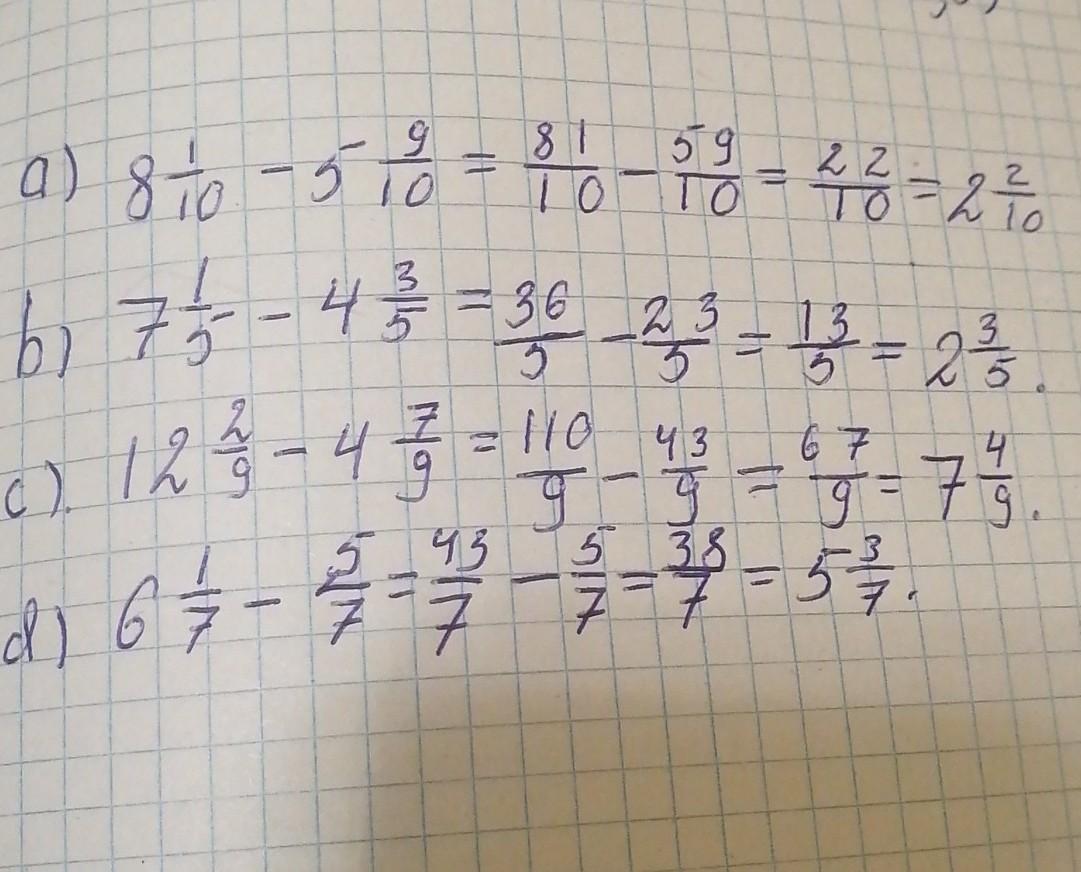 a) 8 1/10 - 5 9/10 = 81/10 - 59/10 = 22/10 = 2 2/10
b) 7 1/5 - 4 3/5 = 36/5 - 23/5 = 13/5 = 2 3/5.
c). 12 2/9 - 4 7/9 = 110/9 - 43/9 = 67/9 = 7 4/9.
d) 6 1/7 - 5/7 = 43/7 - 5/7 = 38/7 = 5 3/7.